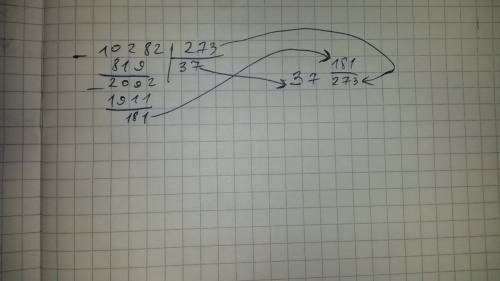 - 10282 | 273
819 37
- 2092
1911
181
37 181/273